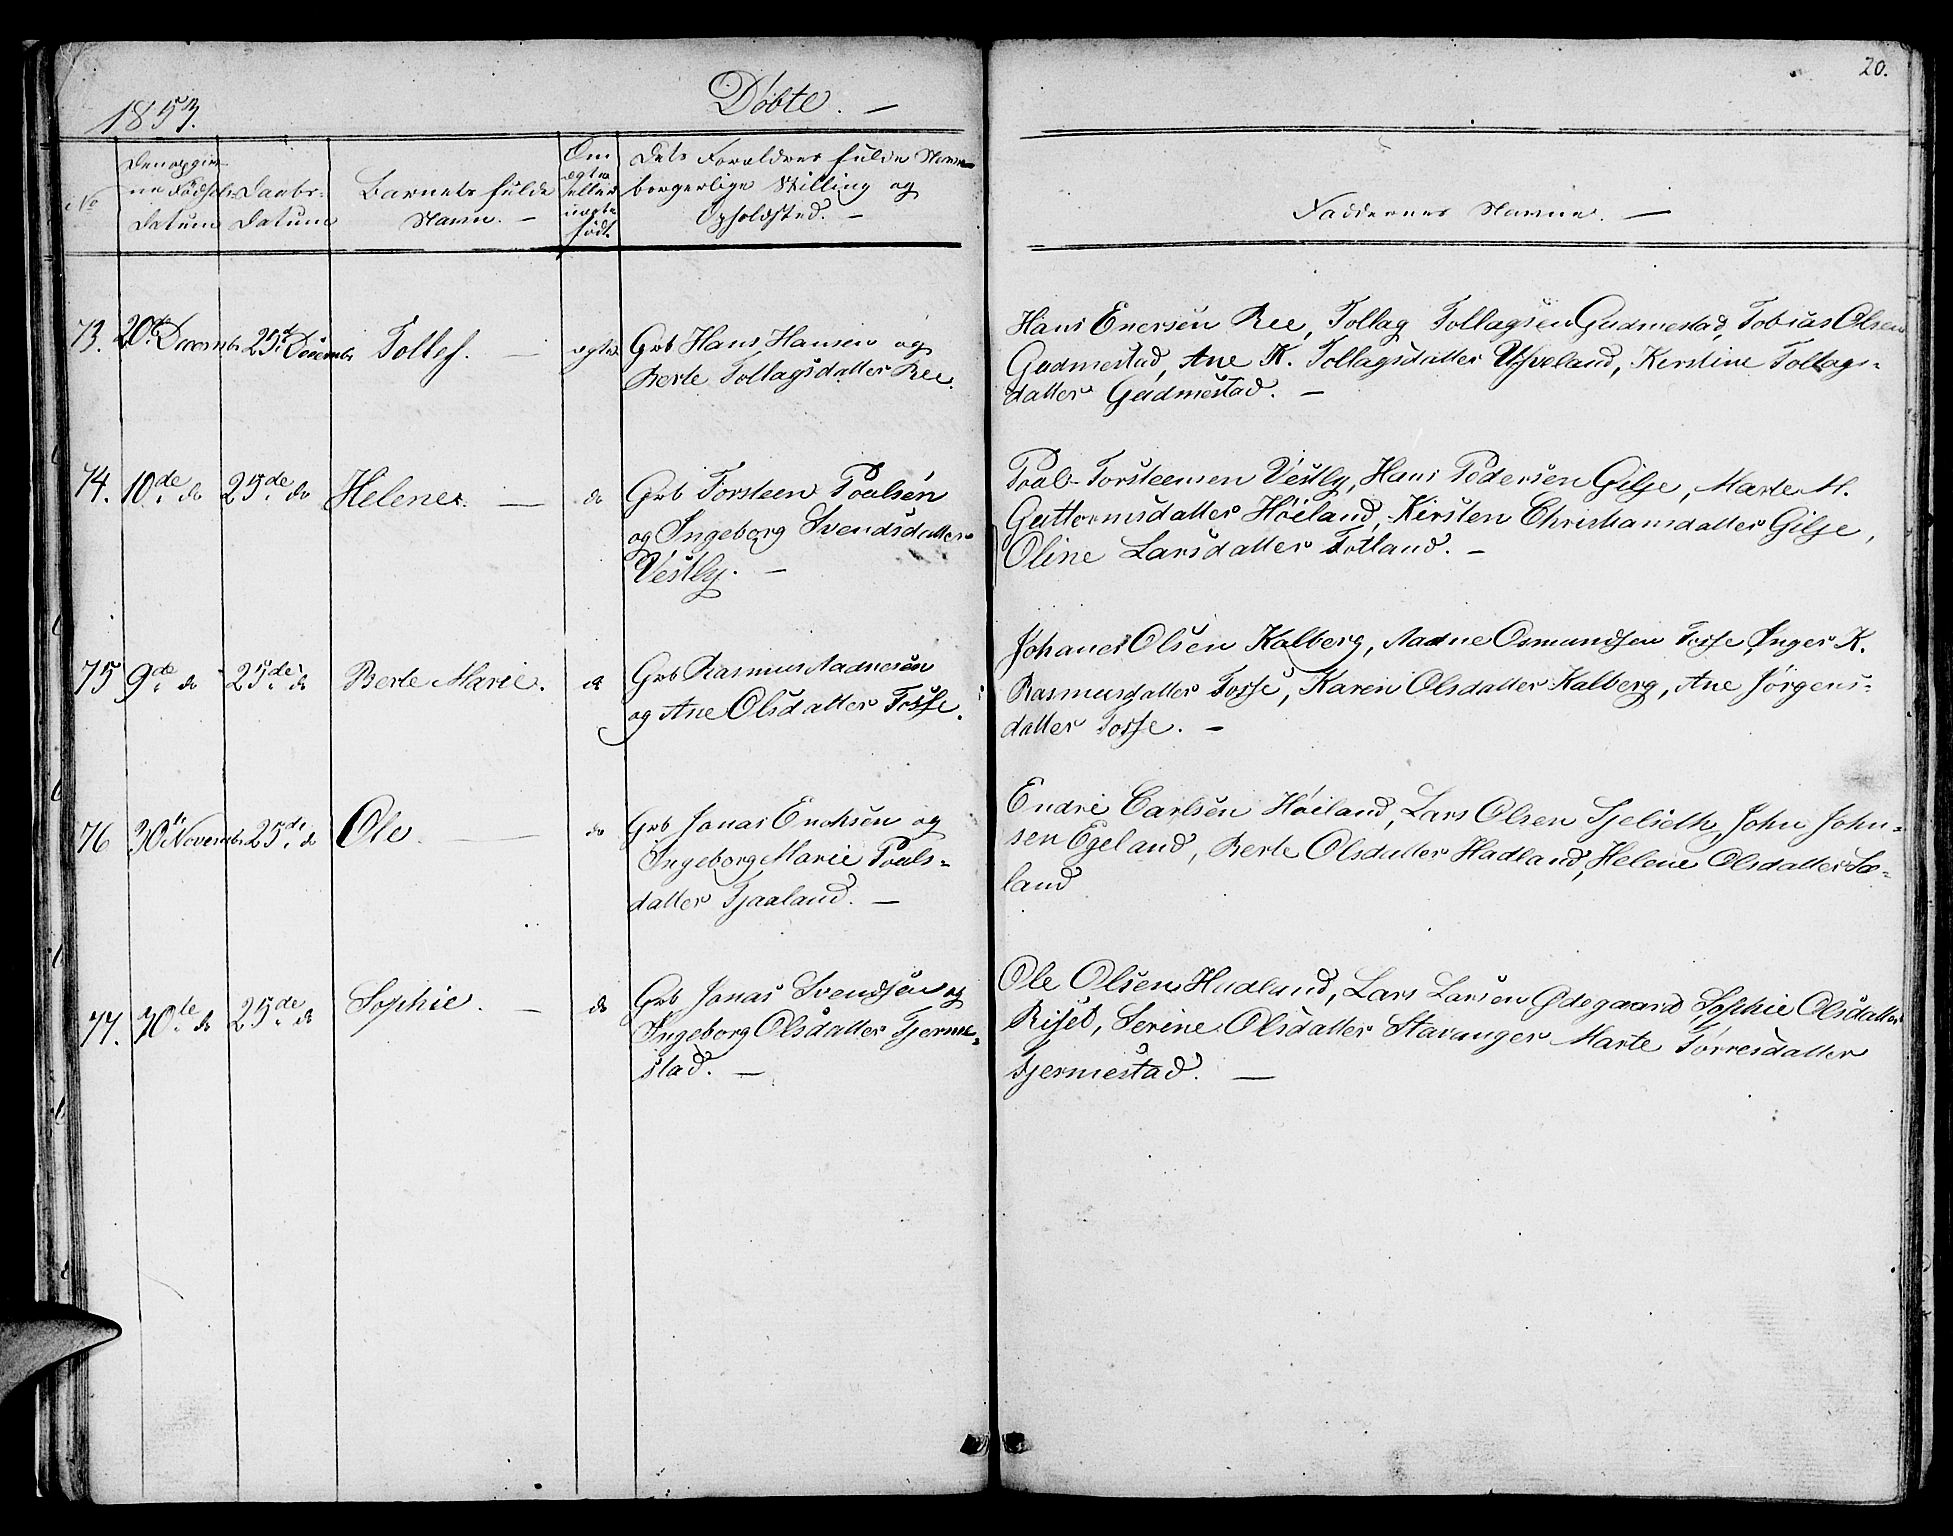 20.
1853.
Døbte. —
No
Den opgivne Fødsels Datum
Daabs-Datum
Barnets fulde Navn. —
Om ægte eller uægte født.
Dets Forældres fulde Navne borgerlige Stilling og Opholdsted. —
Faddernes Navne. —
73. 20de Decembr 25de Decembr Tollef. — ægte
Grb Hans Hansen og
Berte Tollagsdatter Ree.
Hans Enersen Ree, Tollag Tollagsen Gudmestad, Tobias Olsen
Gudmestad, Ane K. Tollagsdatter Udsveland, Kirstine Tollags-
datter Gudmestad. —
74. 10de do 25de do Helene. — do
Grb Torsteen Poulsen
og Ingeborg Svendsdatter
Vestly. —
Poul Torsteensen Vestly, Hans Pedersen Gilje, Marte M.
Guttormsdatter Høiland, Kirsten Christiansdatter Gilje,
Oline Larsdatter Totland. —
75 9de do 25de do Berte Marie. do
Grb Rasmus Aadnesen
og Ane Olsdatter Fosse.
Johanes Olsen Kalberg, Aadne Osmundsen Fosse, Inger K.
Rasmusdatter Fosse, Karen Olsdatter Kalberg, Ane Jørgens-
datter Fosse. —
76 30te Novembr 25de do Ole. — do
Grb Jonas Enoksen og
Ingeborg Marie Pouls-
datter Tjaaland. —
Endre Carlsen Høiland, Lars Olsen Tjelseth, John John-
sen Egeland, Berte Olsdatter Hadland, Helene Olsdatter Sæ-
land
77. 10de do 25de do Sophie. — do
Grb Jonas Svendsen og
Ingeborg Olsdatter Tjerme-
stad. —
Ole Olsen Hadland, Lars Larsen Ødegaard, Sophie Olsdatter
Riset, Serine Olsdatter Stavanger Marte Torresdatter
Tjermestad. —